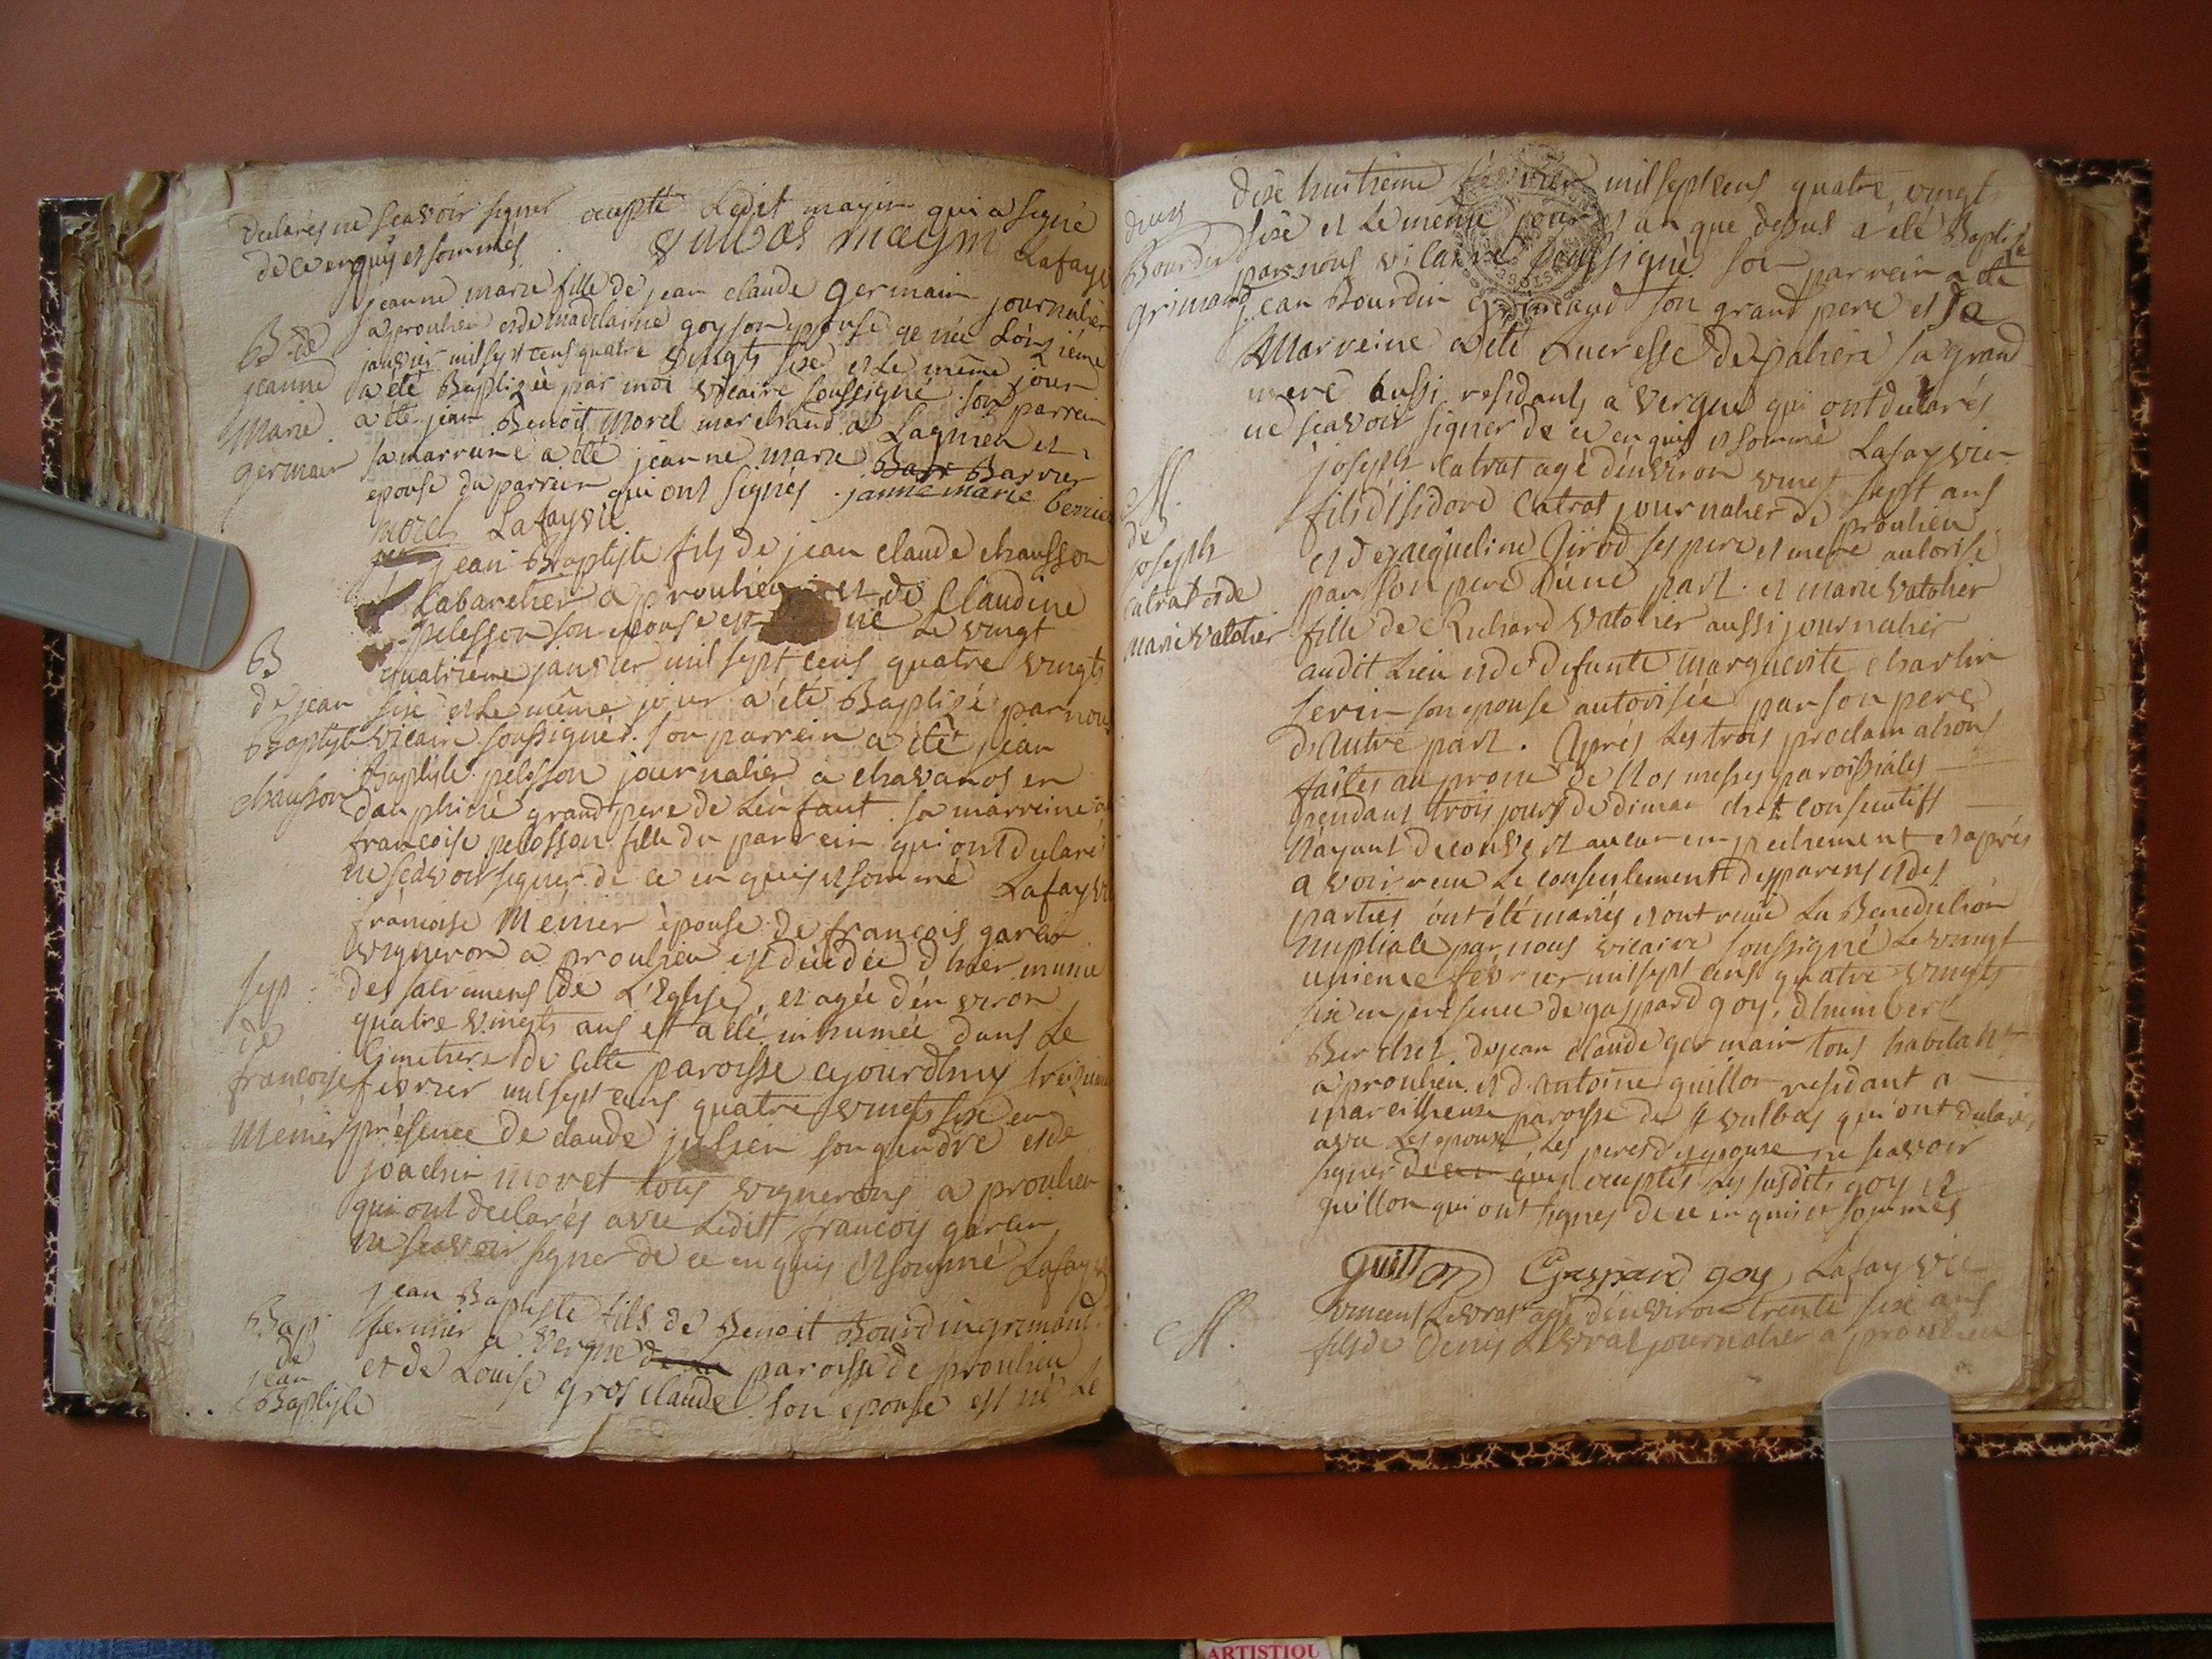 declarés ne scavoir signer excepté Ledit mayin qui a signé
de ce enquis et sommés Lafay
jeanne marie fille de jean claude germain journalier
a proulieu et de madelaine goy son epouse
janvier mil sept cens quatre vingts sixe et Le même jour
a été Baptizée par moi vicaire soussigné son parrein
a été jean Benoit Morel marchand a Lagnieu et
sa marreine a été jeanne marie Barr Barrier
epouse du parrein qui ont signés janne marie berrier
morel Lafay vic
B de
jeanne
Marie
germain
jean Baptiste fils de jean claude chausson
Labarcher a proulieu et de Claudine
pelosson son epouse est né Le vingt
quatrieme janvier mil sept cens quatre vingts
sixe et Le même jour a été Baptizé par nous
vicaire soussigné. son parrein a été jean
Baptiste pelosson journalier a chavanos en
dauphiné grand pere de Lenfant. sa marreine a
francoise pelosson fille du parrein qui ont declaré
ne scavoir signer de ce enquis et sommé Lafay vic
B
de jean
Baptiste
chausson
francoise Meiner épouse de francois garin
vigneron a proulieu est décédée d'hier munie
des sacremens de L'Eglise, et agée d'environ
quatre vingts ans et a été inhumée dans Le
Cimetiere de cette paroisse ajourdhuy treizieme
fevrier mil sept cens quatre vingts sixe en
présence de claude julien son gendre et de
joachin moret tous vignerons a proulieu
qui ont declarés avec Ledit francois garin
ne scavoir signer de ce enquis et sommé Lafay v
sep
de
francoise
Meiner
jean Baptiste fils de Benoit Bourdin grimaud
fermier a vergne de la paroisse de proulieu
et de Louise gros claude son epouse est né Le
Bap
de
jean
Baptiste
dixe huitieme fevrier mil sept cens quatre vingt
sixe et Le même jour et an que desus a été Baptisé
par nous vicaire soussigné son parrein a été
jean Bourdin grimaud son grand pere et sa
Marreine a été Lucresse depaliere sa grand
mere aussi residants a vergne qui ont declarés
ne scavoir signer de ce enquis et sommé Lafay vic
Bourdin
grimaud
joseph Catrat agé d'environ vingt sept ans
fils d'isidore Catrat journalier de proulieu
et de jacqueline Girod ses pere et mere autorisé
par son pere d'une part. et marie vatolier
fille de Richard vatolier aussi journalier
audit Lieu et de defunte marguerite charlin
serin son epouse autorisée par son pere
d'Autre part. Aprés Les trois proclamations
faites au prone de Nos messes paroissiales
pendant trois jours de dimanchet consecutifs
N'ayant decouvert aucun empechement et aprés
avoir recu Le consentement des parens et des
parties ont été mariés et ont recue La Benediction
Nuptiale par nous vicaire soussigné Le vingt
unieme fevrier mil sept cens quatre vingts
sixe en présence de gaspard goy, d'humbert
Berchet, de jean claude germain tous habitants
a proulieu et d'antoine guillon residant a
mareillieux paroisse de st vulbas qui ont declarés
avec Les epoux Les peres d'yepouse ne scavoir
signer de ce enquis exceptés Les susdits goy et
guillon qui ont signes de ce enquis et sommés
M.
de
joseph
catrat et de
marie vatolier
guillon Gaspard goy Lafay vic
vincent Levrat agé d'environ trente sixe ans
fils de Denis Levrat journalier a proulieu
M.
ARTISTIQU